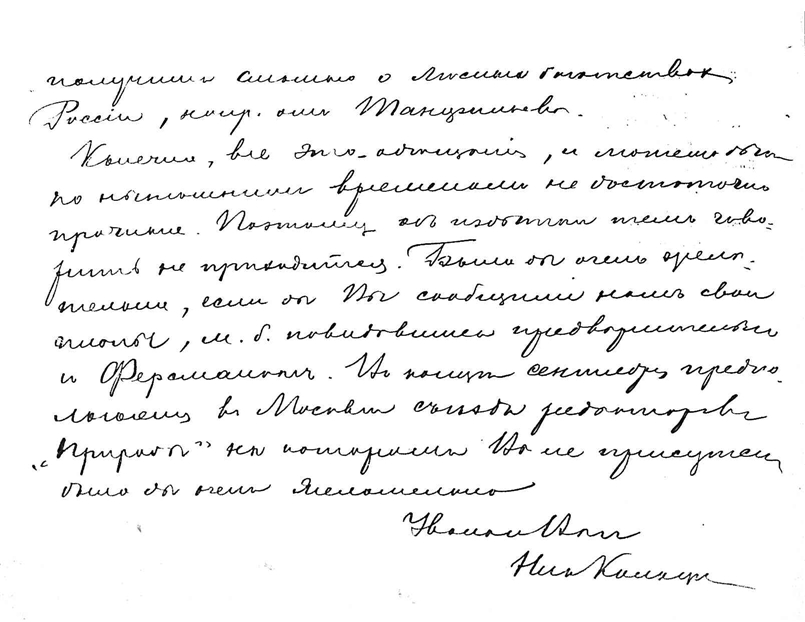 получить статью о лесных богатствах
Россіи, напр. отъ Танфильева.
Конечно, все это , и можетъ быть
по нынѣшнимъ временамъ не достаточно
прочные. Поэтому объ избыткѣ темъ гово-
рить не приходится. Было бы очень жела-
тельно, если бы Вы сообщили намъ свои
планы, м. б. повидавшись предварительно
и Ферсманомъ. На конецъ сентября предпо-
лагаемъ въ Москвѣ съѣздъ редакторовъ
„Природы” на которомъ Ваше присутст.
было бы очень желательно
Уважающій Васъ
Ник Кольцов